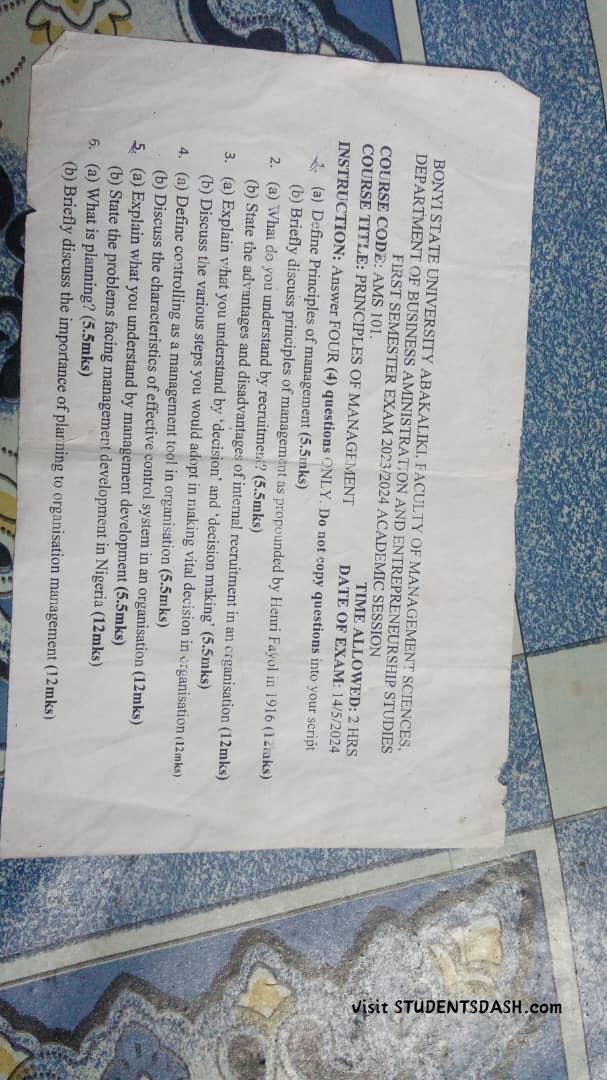 BONYI STATE UNIVERSITY ABAKALIKI. FACULTY OF MANAGEMENT SCIENCES,
DEPARTMENT OF BUSINESS AMINISTRATION AND ENTREPRENEURSHIP STUDIES
FIRST SEMESTER EXAM 2023/2024 ACADEMIC SESSION
COURSE CODE: AMS 101. TIME ALLOWED: 2 HRS
COURSE TITLE: PRINCIPLES OF MANAGEMENT DATE OF EXAM: 14/5/2024
INSTRUCTION: Answer FOUR (4) questions ONLY. Do not copy questions into your script
1. (a) Define Principles of management (5.5mks)
(b) Briefly discuss principles of management as propounded by Henri Fayol in 1916 (12mks)
2. (a) What do you understand by recruitment? (5.5mks)
(b) State the advantages and disadvantages of internal recruitment in an organisation (12mks)
3. (a) Explain what you understand by 'decision' and 'decision making' (5.5mks)
(b) Discuss the various steps you would adopt in making vital decision in organisation (12mks)
4. (a) Define controlling as a management tool in organisation (5.5mks)
(b) Discuss the characteristics of effective control system in an organisation (12mks)
5. (a) Explain what you understand by management development (5.5mks)
(b) State the problems facing management development in Nigeria (12mks)
6. (a) What is planning? (5.5mks)
(b) Briefly discuss the importance of planning to organisation management (12mks)
visit STUDENTSDASH.com